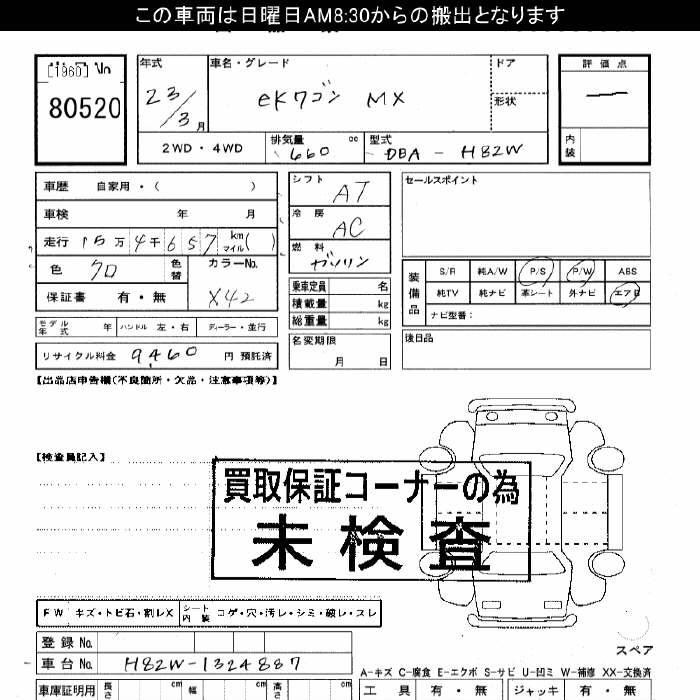 この車両は日曜日AM8:30からの搬出となります
80520
年式
23/3月
車名・グレード
eKワゴン MX
ドア
形状
評価点
内装
2WD・4WD
排気量 cc
660
型式
DBA-H82W
車歴 自家用・( )
車検 年 月
走行 15万4千657 km マイル( )
色 クロ
色替
カラーNo.
X42
保証書 有・無
モデル年式 年
ハンドル 左・右
ディーラー・並行
リサイクル料金 9,460 円 預託済
シフト
AT
冷房
AC
燃料
ガソリン
乗車定員 名
積載量 kg
総重量 kg
名変期限
月 日
セールスポイント
装備品
S/R 純A/W P/S P/W ABS
純TV 純ナビ 革シート 外ナビ エアB
ナビ型番:
後日品
【出品店申告欄(不良箇所・欠品・注意事項等)】
【検査員記入】
買取保証コーナーの為
未検査
FW キズ・トビ石・割レX
シート内装 コゲ・穴・汚レ・シミ・破レ・スレ
登録No.
車台No. H82W-1324887
スペア
A-キズ C-腐食 E-エクボ S-サビ U-凹ミ W-補修 XX-交換済
車庫証明用 長さ cm 幅 cm 高さ cm
工具 有・無 ジャッキ 有・無